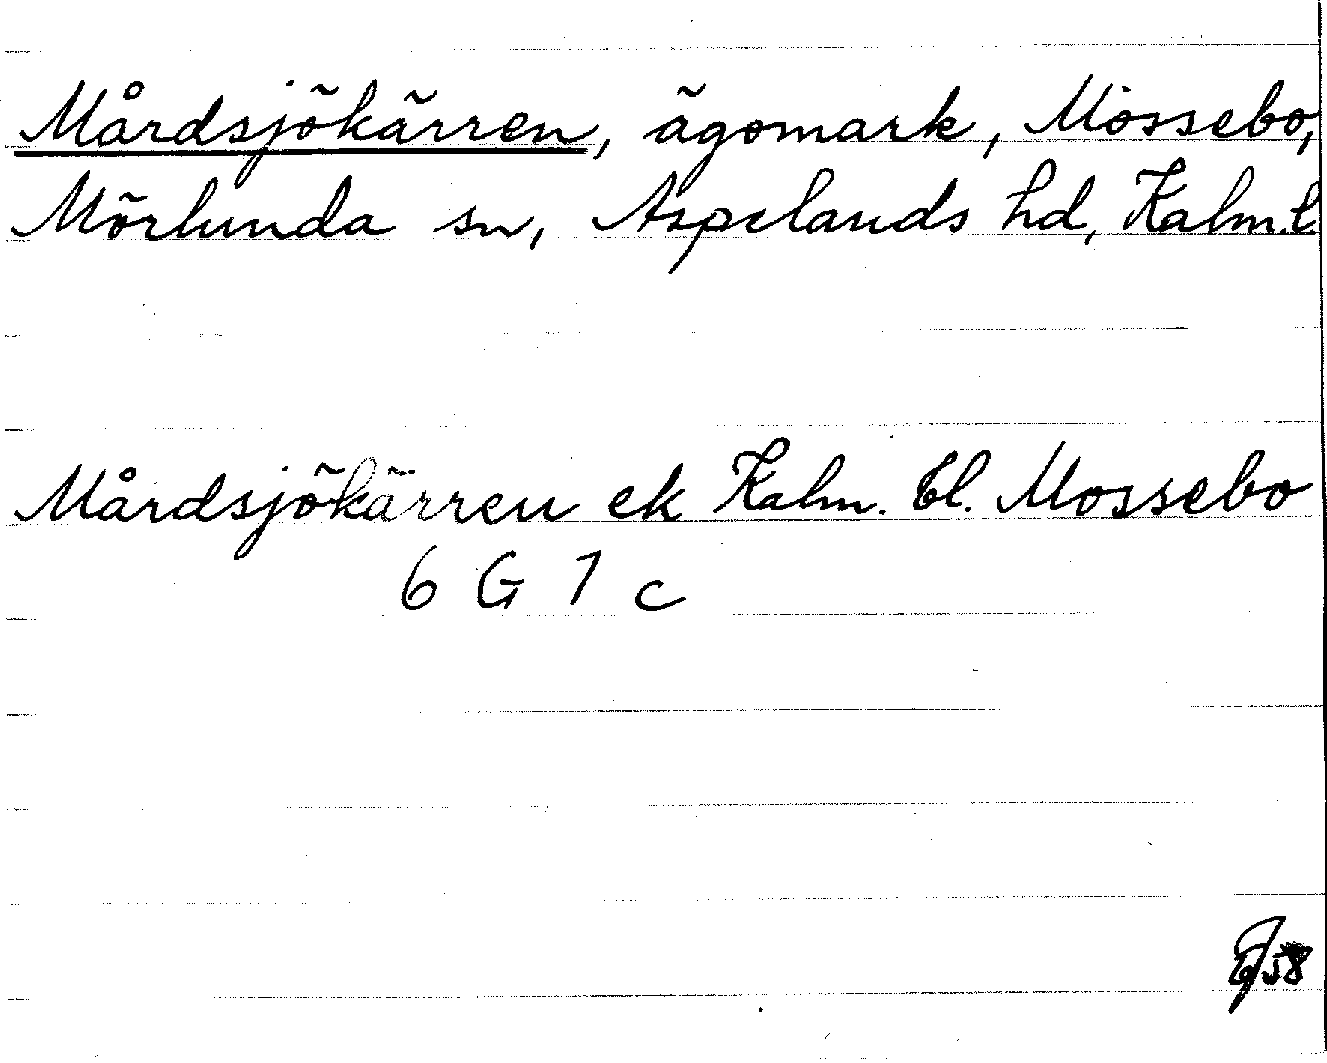 Mårdsjökärren, ägomark, Mossebo,
Mörlunda sn, Aspelands hd, Kalm.l
Mårdsjökärren ek Kalm. bl. Mossebo
6 G 1 c
58